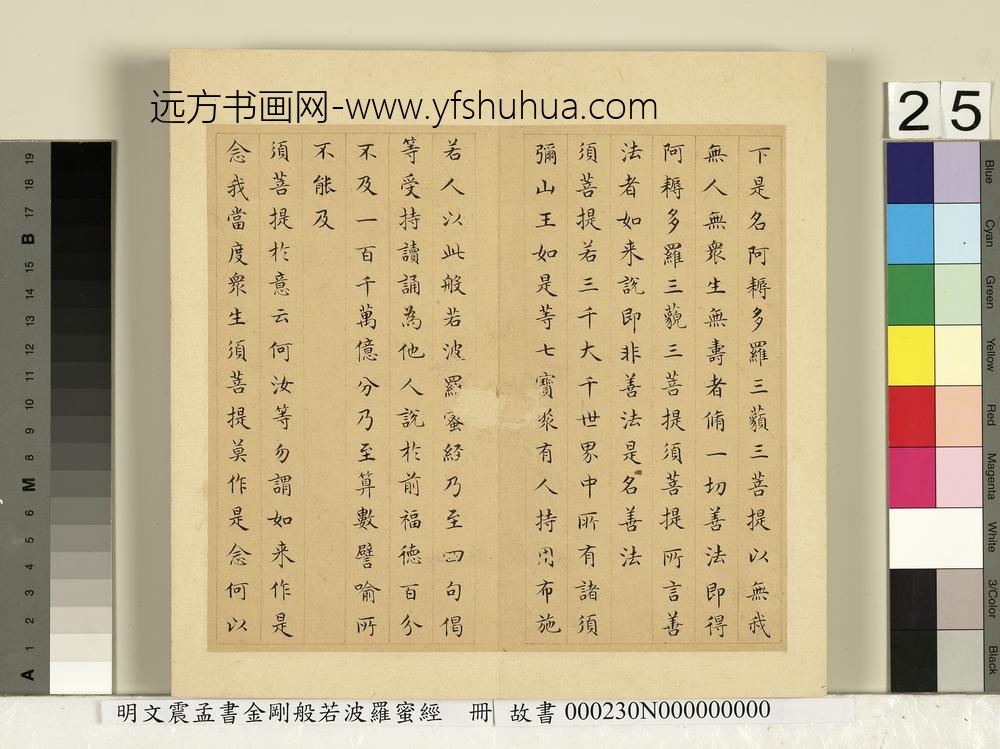 远方书画网-www.yfshuhua.com
下是名阿耨多羅三藐三菩提以無我
無人無衆生無壽者脩一切善法即得
阿耨多羅三藐三菩提須菩提所言善
法者如来說即非善法是名善法
須菩提若三千大千世界中所有諸須
彌山王如是等七寶聚有人持用布施
若人以此般若波羅蜜経乃至四句偈
等受持讀誦為他人說於前福德百分
不及一百千萬億分乃至算數譬喻所
不能及
須菩提於意云何汝等勿謂如来作是
念我當度衆生須菩提莫作是念何以
明文震孟書金剛般若波羅蜜經 冊 故書 000230N000000000
25
Blue
Cyan
Green
Yellow
Red
Magenta
White
3/Color
Black
A 1 2 3 4 5 6 M 8 9 10 11 12 13 14 15 B 17 18 19